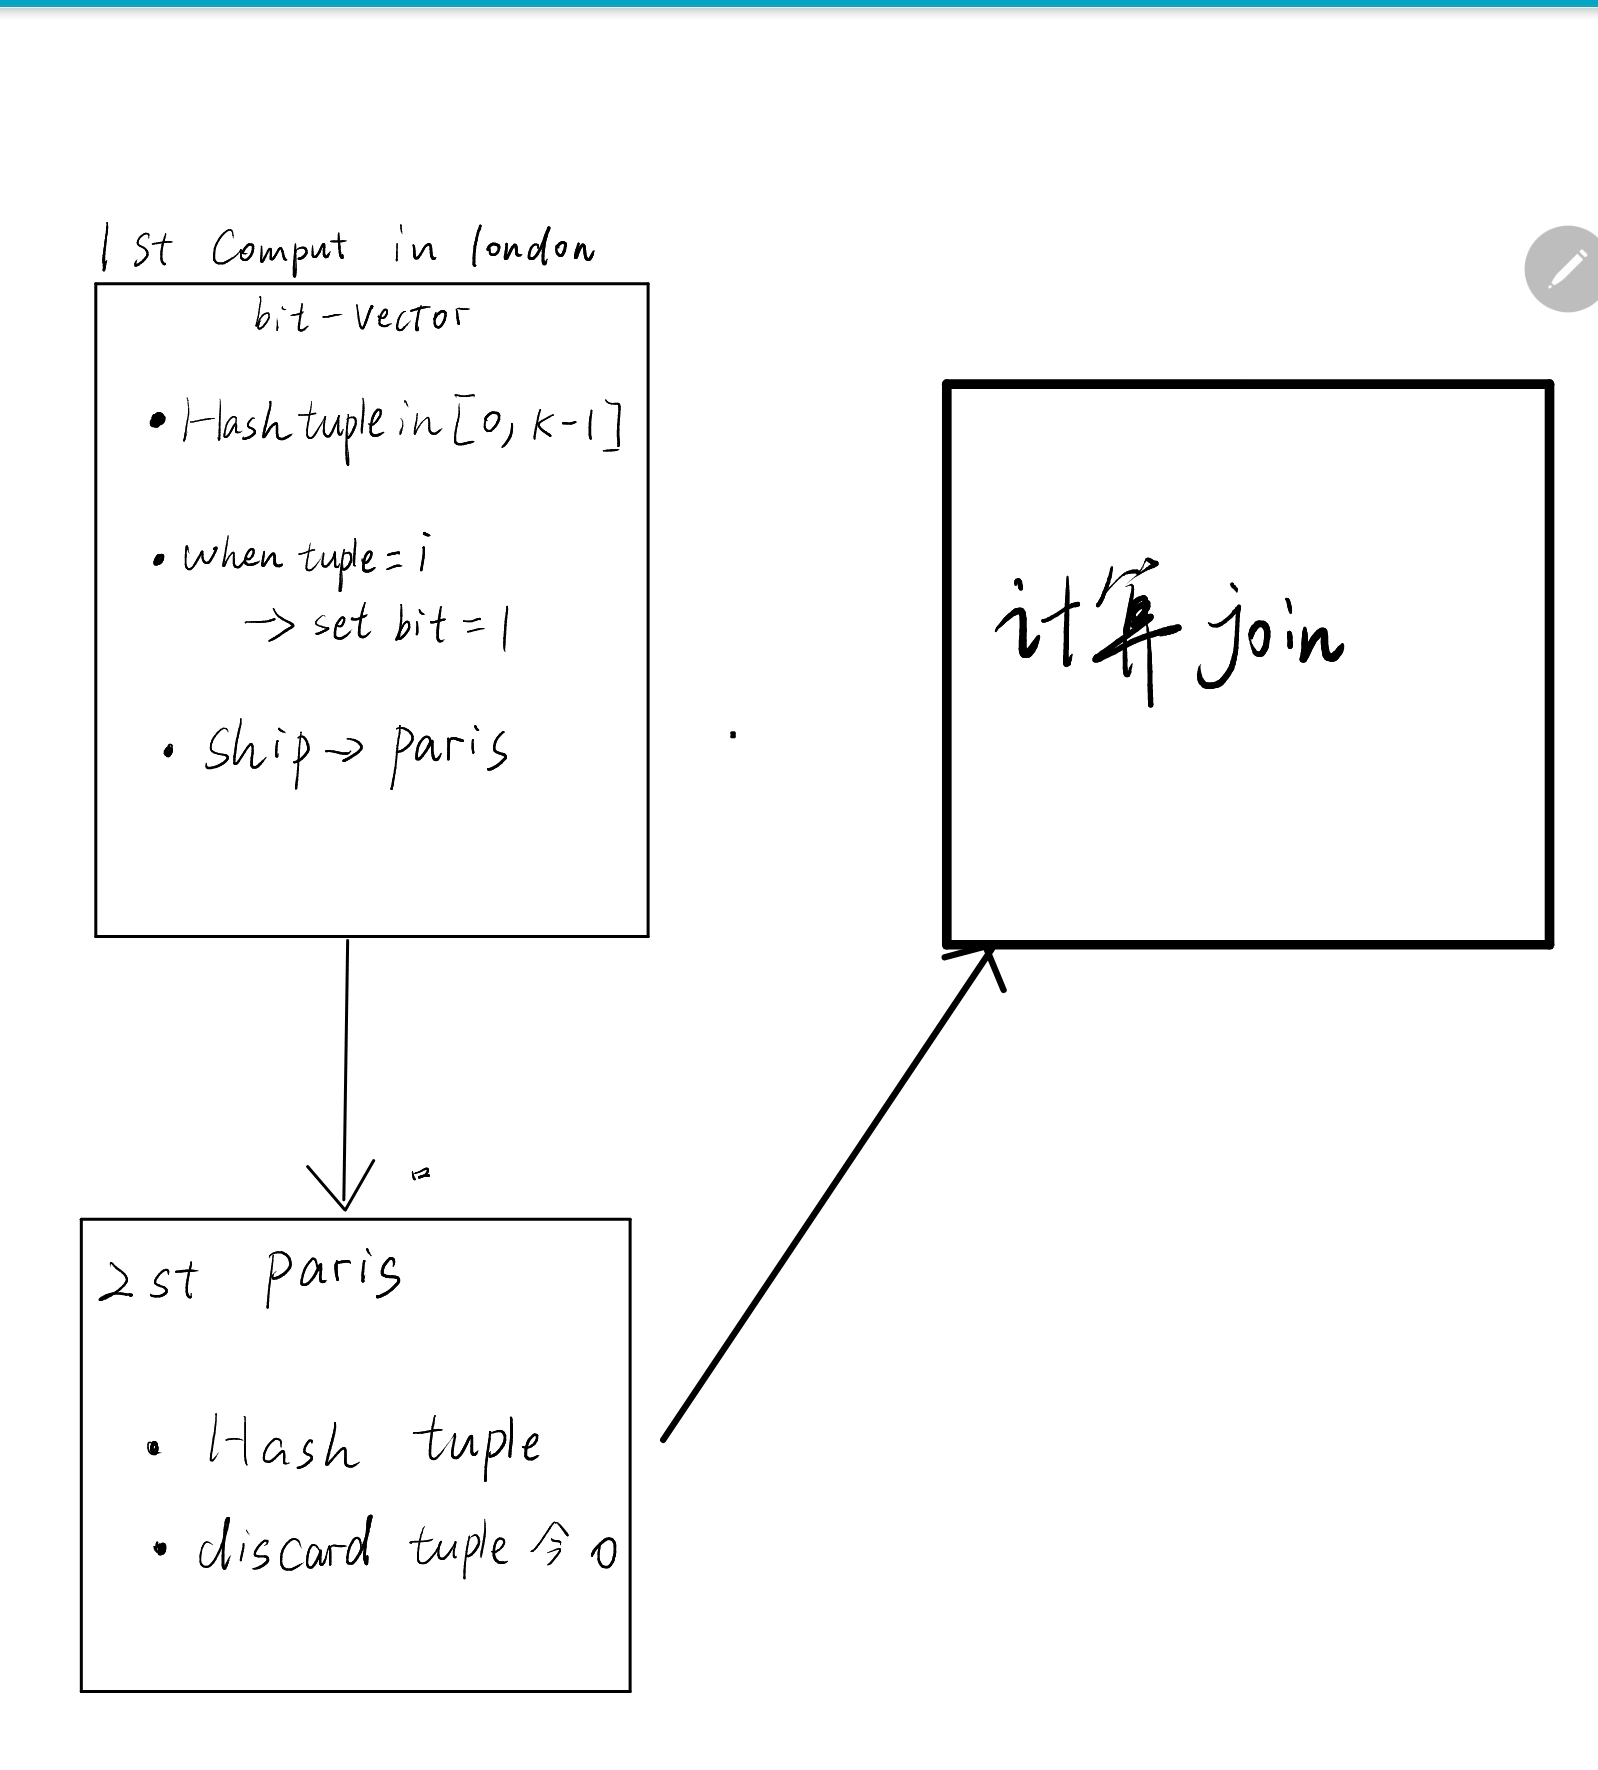 1 st Comput in london
bit-vector
• Hash tuple in [0, k-1]
• when tuple = i
→ set bit = 1
• Ship → paris
2st paris
• Hash tuple
• discard tuple 令 0
计算 join